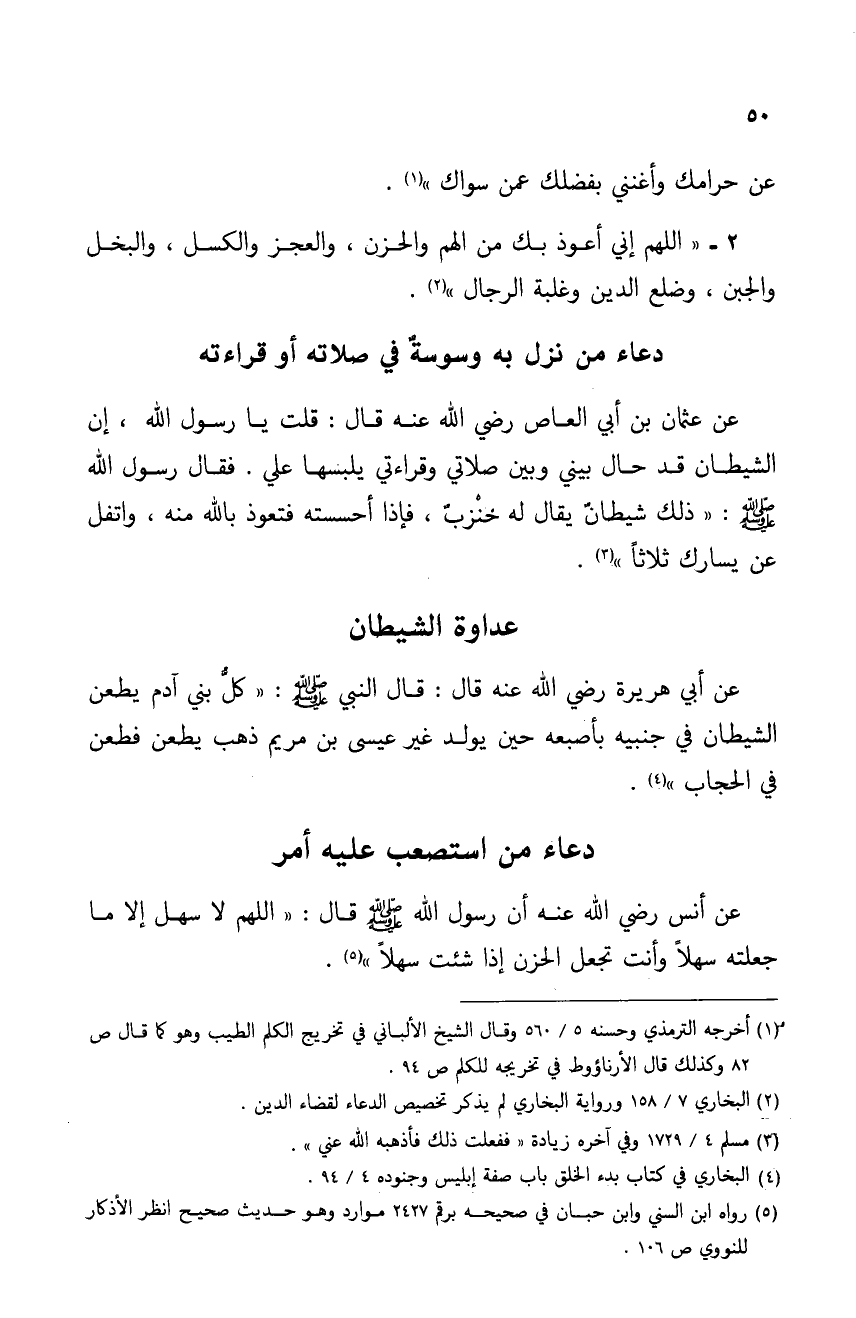 ٥٠
عن حرامك وأغنني بفضلك عمن سواك »(١) .
٢ ـ « اللهم إني أعوذ بك من الهم والحزن ، والعجز والكسل ، والبخل
والجبن ، وضلع الدين وغلبة الرجال »(٢) .
دعاء من نزل به وسوسةٌ في صلاته أو قراءته
عن عثمان بن أبي العاص رضي الله عنه قال : قلت يا رسول الله ، إن
الشيطان قد حال بيني وبين صلاتي وقراءتي يلبسها علي . فقال رسول الله
ﷺ : « ذلك شيطانٌ يقال له خنْزبٌ ، فإذا أحسسته فتعوذ بالله منه ، واتفل
عن يسارك ثلاثاً »(٣) .
عداوة الشيطان
عن أبي هريرة رضي الله عنه قال : قال النبي ﷺ : « كلُّ بني آدم يطعن
الشيطان في جنبيه بأصبعه حين يولد غير عيسى بن مريم ذهب يطعن فطعن
في الحجاب »(٤) .
دعاء من استصعب عليه أمر
عن أنس رضي الله عنه أن رسول الله ﷺ قال : « اللهم لا سهل إلا ما
جعلته سهلاً وأنت تجعل الحزن إذا شئت سهلاً »(٥) .
(١) أخرجه الترمذي وحسنه ٥ / ٥٦٠ وقال الشيخ الألباني في تخريج الكلم الطيب وهو كما قال ص
٨٢ وكذلك قال الأرناؤوط في تخريجه للكلم ص ٩٤ .
(٢) البخاري ٧ / ١٥٨ ورواية البخاري لم يذكر تخصيص الدعاء لقضاء الدين .
(٣) مسلم ٤ / ١٧٢٩ وفي آخره زيادة « ففعلت ذلك فأذهبه الله عني » .
(٤) البخاري في كتاب بدء الخلق باب صفة إبليس وجنوده ٤ / ٩٤ .
(٥) رواه ابن السني وابن حبان في صحيحه برقم ٢٤٢٧ موارد وهو حديث صحيح انظر الأذكار
للنووي ص ١٠٦ .